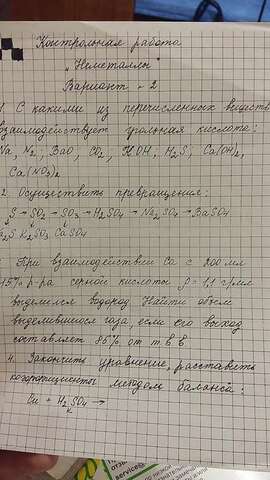 Контрольная работа
„Неметаллы"
Вариант - 2
1. С какими из перечисленных веществ
взаимодействует угольная кислота:
Na, N₂, BaO, CO₂, KOH, H₂S, Ca(OH)₂,
Ca(NO₃)₂
2. Осуществить превращения:
S → SO₂ → SO₃ → H₂SO₄ → Na₂SO₄ → BaSO₄
K₂SO₃ CuSO₄
При взаимодействии Ca с 200 мл
15% р-ра серной кислоты ρ = 1,1 г/мл
выделился водород. Найти объем
выделившегося газа, если его выход
составляет 85% от т в в
4. Закончить уравнение, расставить
коэффициенты методом баланса:
Cu + H₂SO₄ →
к